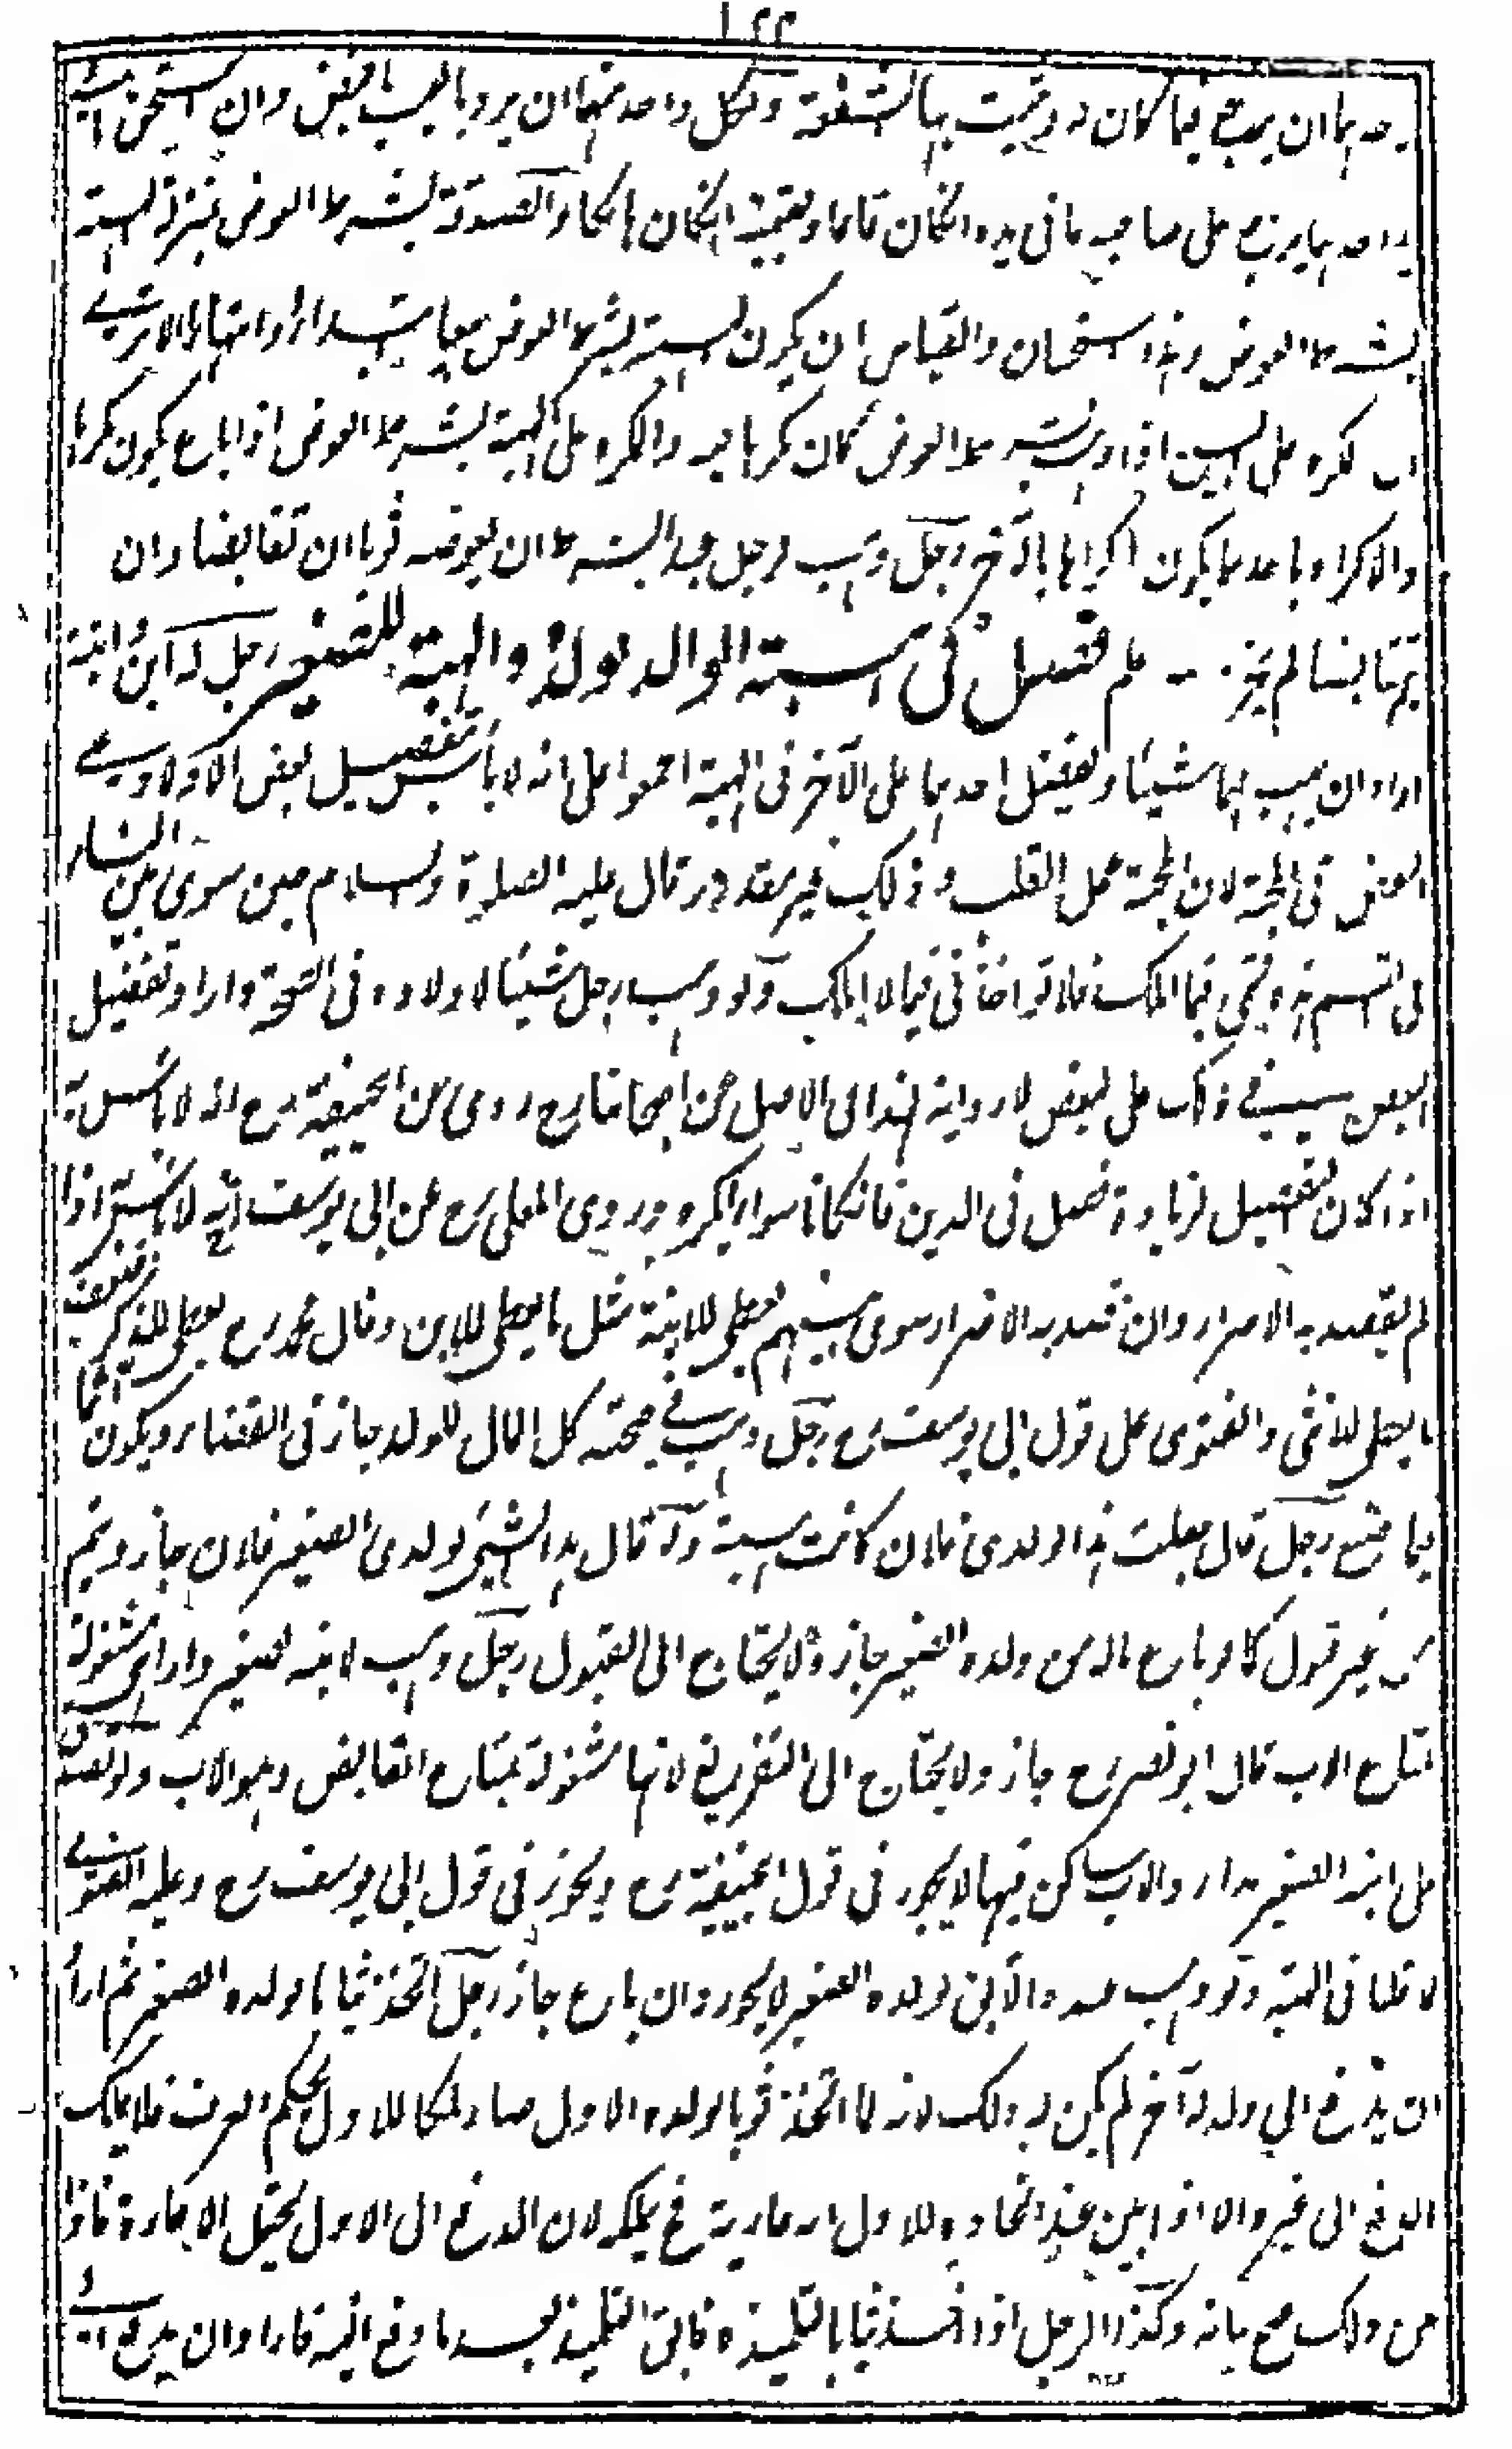 احدهما ان يرجع فيما كان له ويثبت بها الشفعة ولكل واحد منهما ان يرد بالعيب ما قبض وان استحق ما في
يد احدهما يرجع على صاحبه بما في يده انكان قائما وبقيمته انكان هالكا والصدقة بشرط العوض بمنزلة الهبة
بشرط العوض وهذا استحسان والقياس ان يكون الهبة بشرط العوض بيعا ابتداء وانتهاء الا ترى
ان المكره على البيع اذا وهب بشرط العوض كان مكرها فيه والمكره على الهبة بشرط العوض اذا باع يكون مكرها
والاكراه باحدهما يكون اكراها بالآخر رجل وهب لرجل عبدا بشرط ان يعوضه ثوبا ان تقابضا وان
لم يتقابضا لم يجز فصل في هبة الوالد لولده والهبة للصغير رجل له ابن وابنة
اراد ان يهب لهما شيئا ويفضل احدهما على الآخر في الهبة اجمعوا على انه لا بأس بتفضيل بعض الاولاد على
البعض في المحبة لان المحبة عمل القلب وذلك غير مقدور قال عليه الصلوة والسلام حين سوى بين النساء
في القسم هذا قسمي فيما املك فلا تؤاخذني فيما لا املك ولو وهب رجل شيئا لاولاده في الصحة واراد تفضيل
البعض في ذلك على البعض لا رواية لهذا في الاصل عن اصحابنا رح وروى عن ابي حنيفة رح انه لا بأس به
اذا كان التفضيل لزيادة فضل في الدين فان كانا سواء يكره وروى المعلى رح عن ابي يوسف رح انه لا بأس به اذا
لم يقصد به الاضرار وان قصد به الاضرار سوى بينهم يعطي للابنة مثل ما يعطي للابن وقال محمد رح يعطي للذكر ضعف
ما يعطي للانثى والفتوى على قول ابي يوسف رح رجل وهب في صحته كل المال للولد جاز في القضاء ويكون آثما
فيما صنع رجل قال جعلت هذا لولدي فلان كانت هبة ولو قال هذا الشيء لولدي الصغير فلان جاز ويتم
من غير قبول كما لو باع ماله من ولده الصغير جاز ولا يحتاج الى القبول رجل وهب لابنه الصغير دارا هي مشغولة
بمتاع الاب قال ابو نصر رح جاز ولا يحتاج الى التفريغ لانها مشغولة بمتاع القابض وهو الاب ولو تصدق
على ابنه الصغير بدار والاب ساكن فيها لا يجوز في قول ابي حنيفة رح ويجوز في قول ابي يوسف رح وعليه الفتوى
كما قلنا في الهبة ولو وهب عبده الآبق لولده الصغير لا يجوز وان باع جاز رجل اتخذ ثيابا لولده الصغير ثم اراد
ان يدفع الى ولد له آخر لم يكن له ذلك لانه لما اتخذ ثوبا لولده الاول صار ملكا للاول بحكم العرف فلا يملك
الدفع الى غيره الا اذا بين عند اتخاذه للاول انه عارية فح يملك لان الدفع الى الاول يحتمل الاعارة فاذا
بين ذلك صح بيانه وكذا الرجل اذا اتخذ ثيابا لتلميذه فابق التلميذ بعد ما دفع اليه فاراد ان يدفع الى